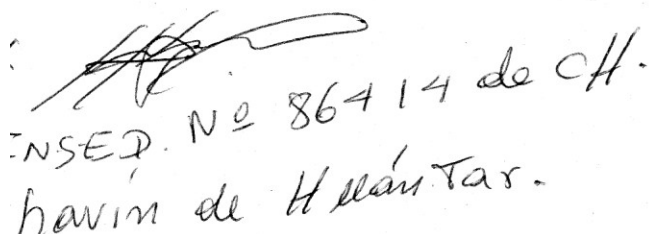 ENSED. Nº 86414 de CH.
havín de Huántar.